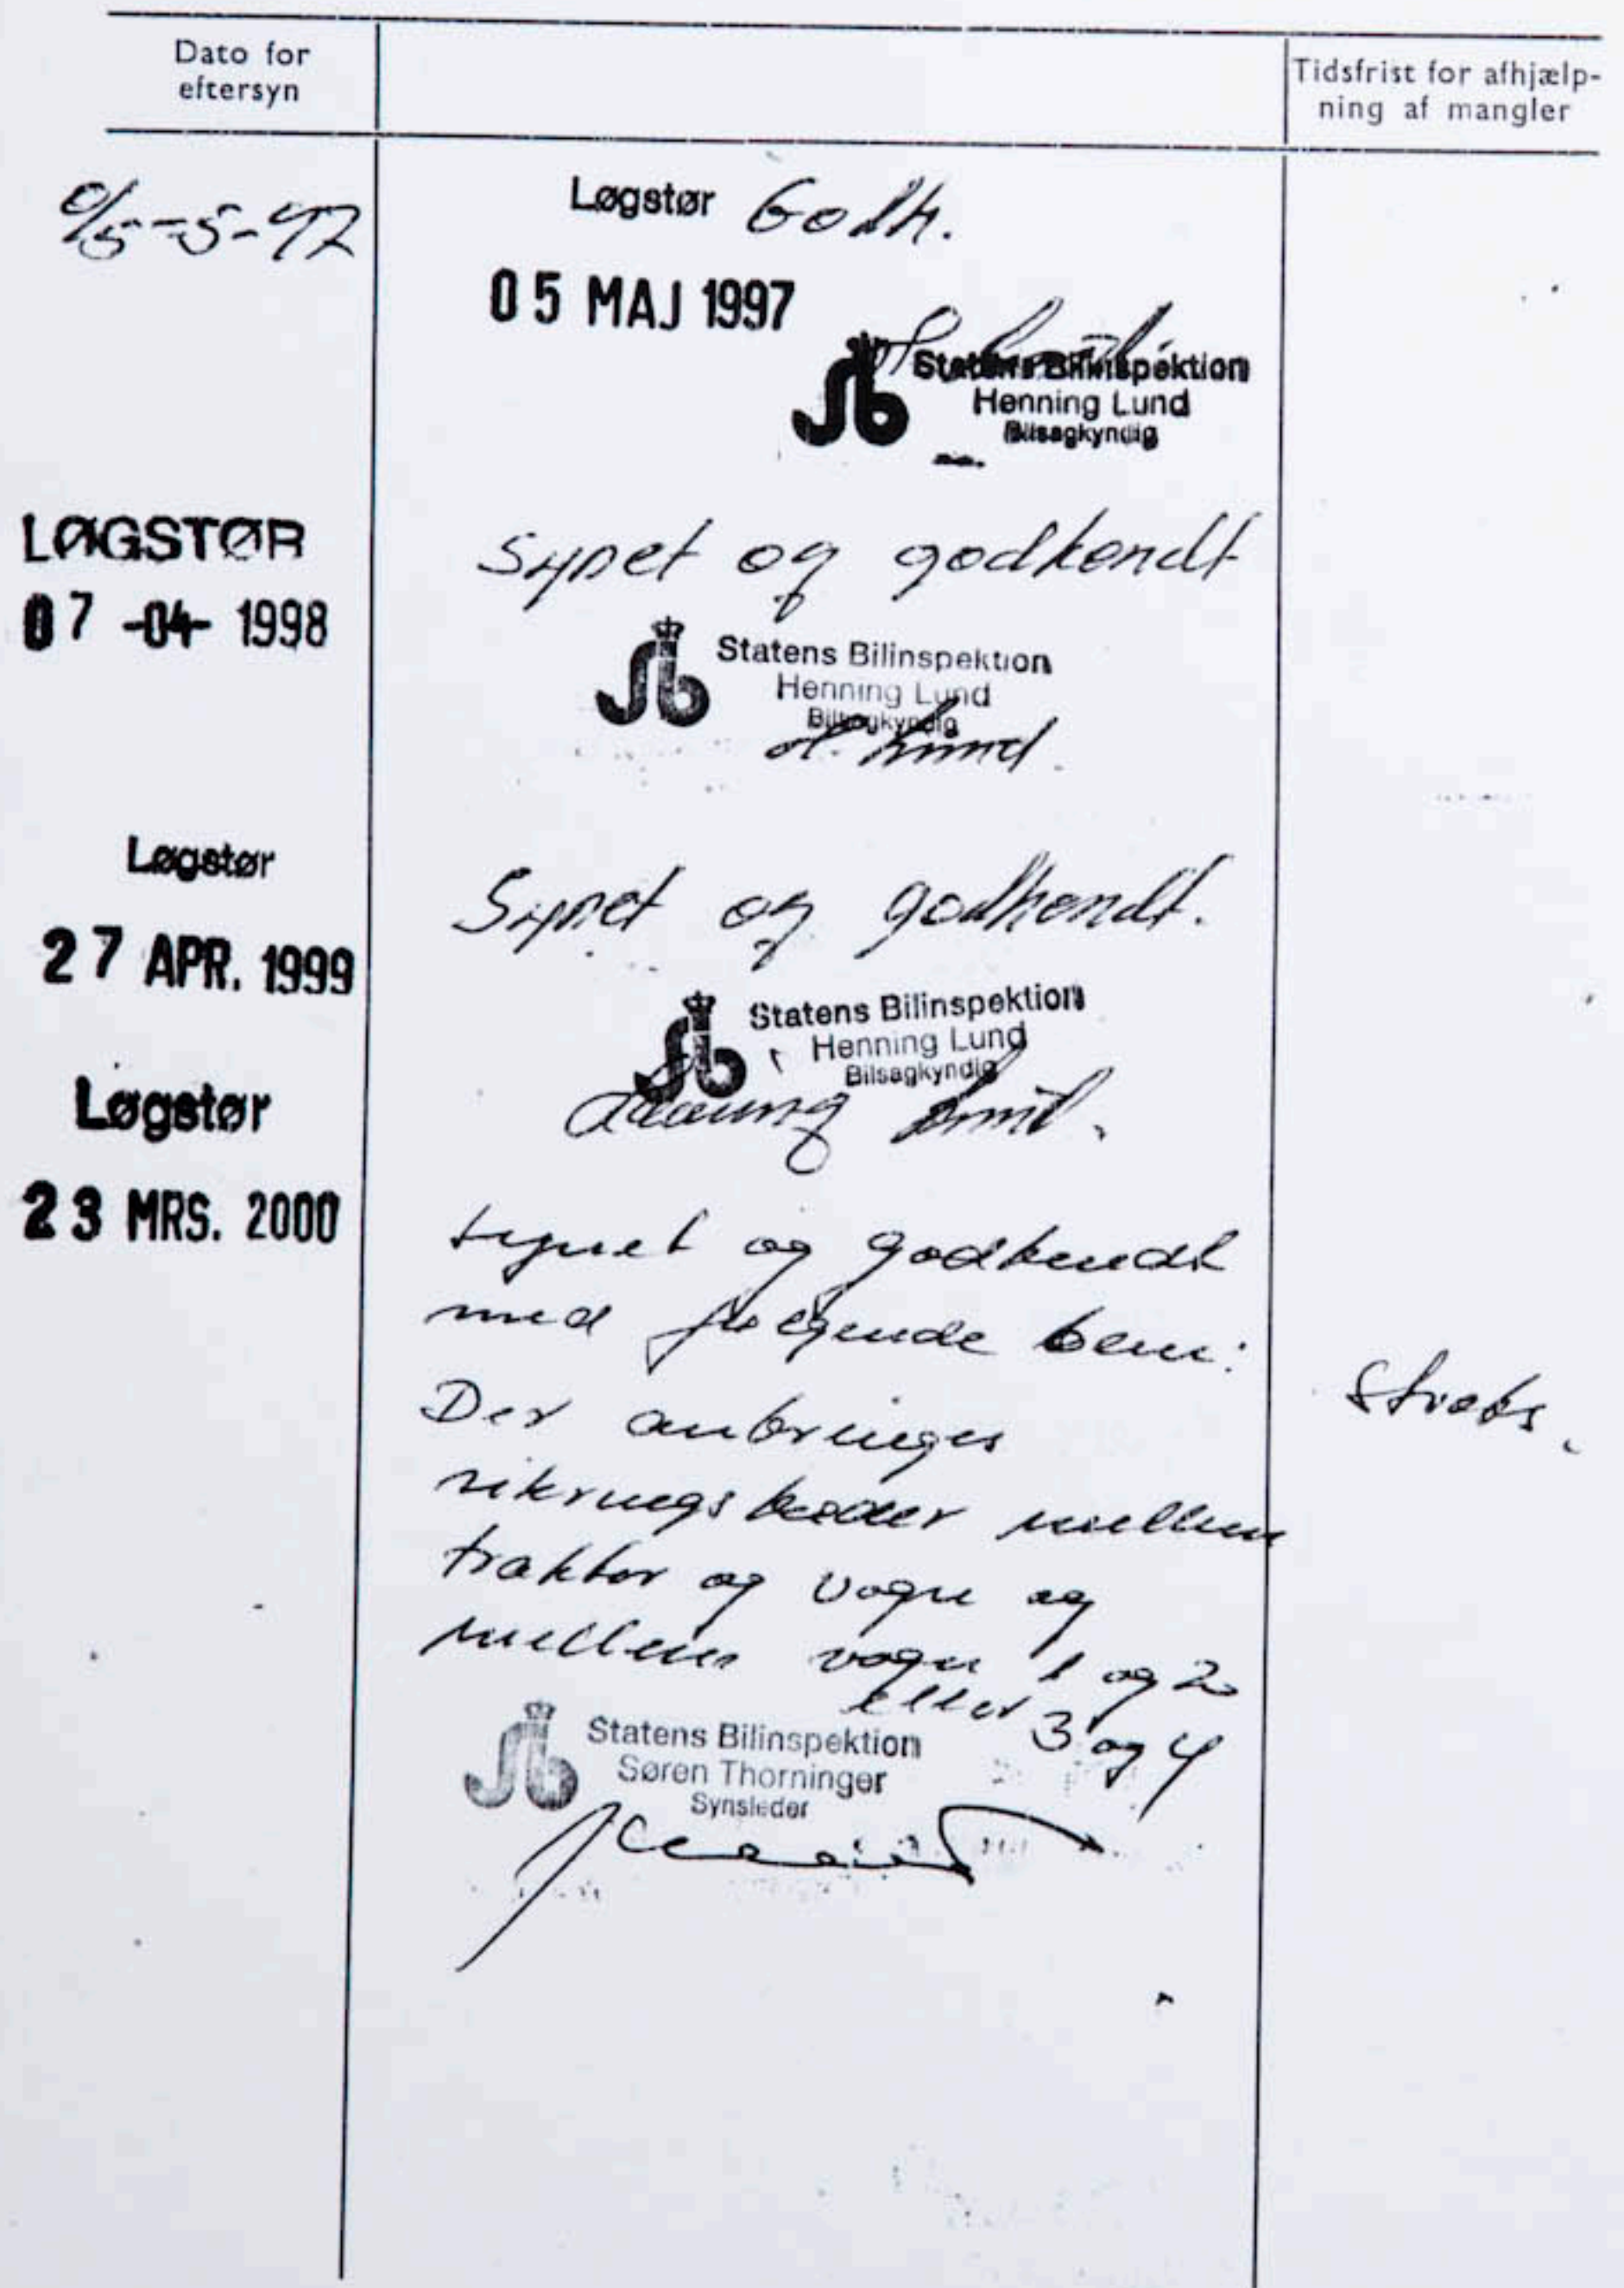 Dato for
eftersyn
Tidsfrist for afhjælp-
ning af mangler
Løgstør Godk.
05 MAJ 1997
Statens Bilinspektion
Henning Lund
Bilsagkyndig
LØGSTØR
07 -04- 1998
Synet og godkendt
Statens Bilinspektion
Henning Lund
Bilsagkyndig
H. Lund.
Løgstør
27 APR. 1999
Synet og godkendt.
Statens Bilinspektion
Henning Lund
Bilsagkyndig
Henning Lund.
Løgstør
23 MRS. 2000
synet og godkendt
med følgende bem:
Der anbringes
straks.
sikringskæder mellem
traktor og vogn og
mellem vogn 1 og 2
eller 3 og 4
Statens Bilinspektion
Søren Thorninger
Synsleder